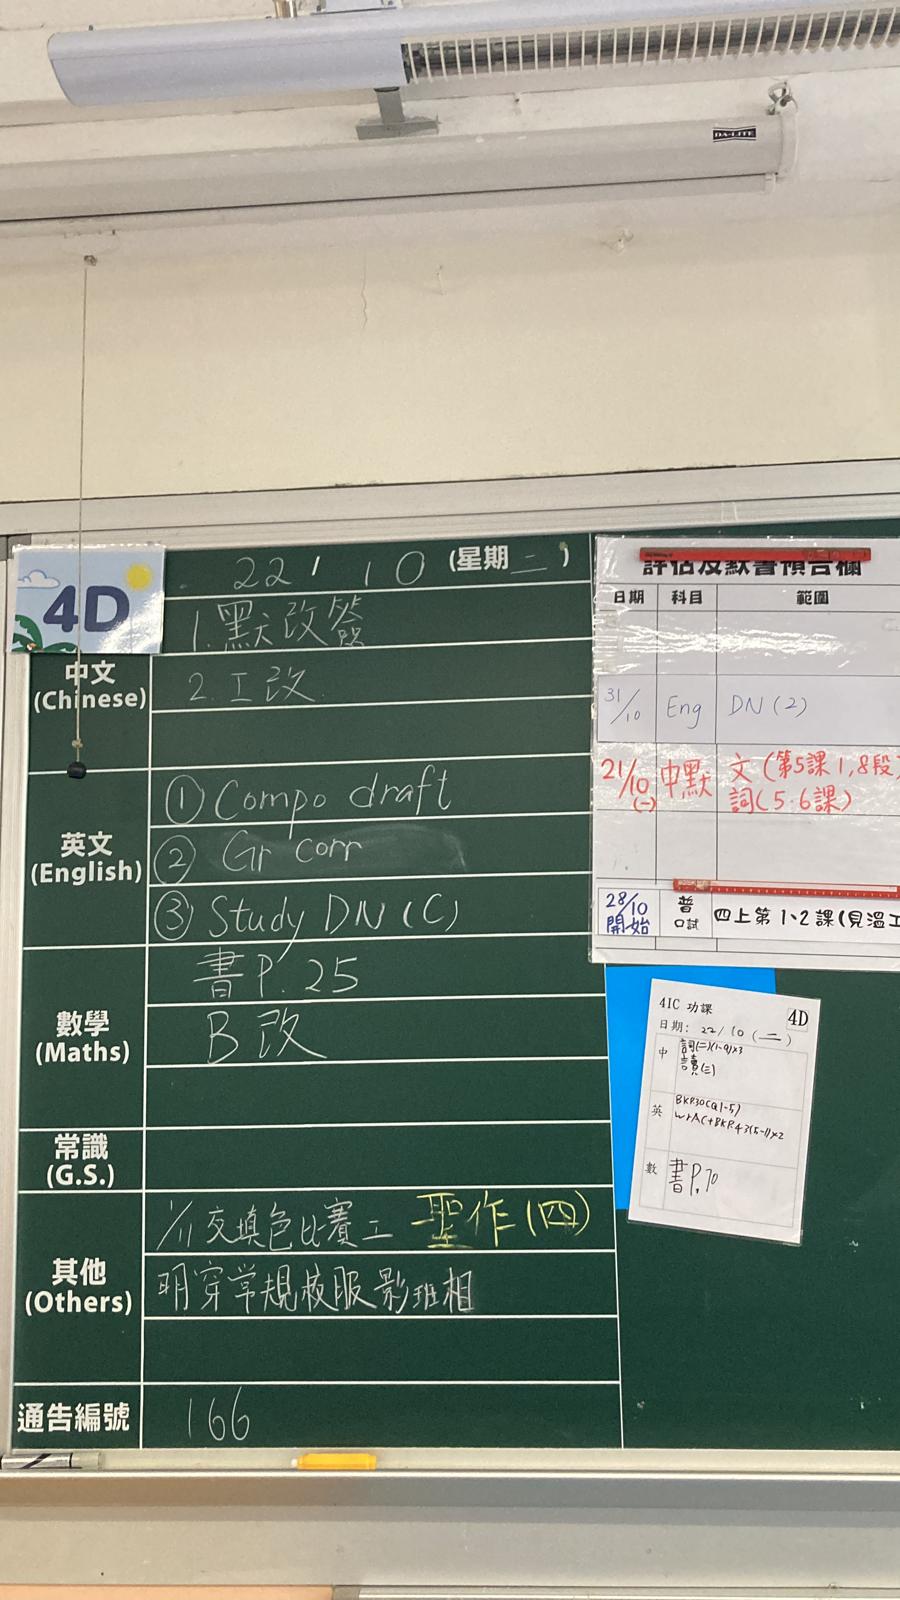 DA-LITE
4D
22 / 10 (星期二)
中文
(Chinese)
1. 默改簽
2. 工改
英文
(English)
① Compo draft
② Gr corr
③ Study DN (C)
數學
(Maths)
書P. 25
B 改
常識
(G.S.)
其他
(Others)
1/11 交填色比賽工 聖作(四)
明穿常規校服影班相
通告編號
166
評估及默書預告欄
日期 科目 範圍
31/10 Eng DN (2)
21/10 (一) 中默 文(第5課1,8段)
詞(5.6課)
28/10 開始 普 口試 四上第1、2課(見溫工
4IC 功課 4D
日期: 22/10 (二)
中 詞(二)(1-9)x3
讀(三)
英
數 書P.70